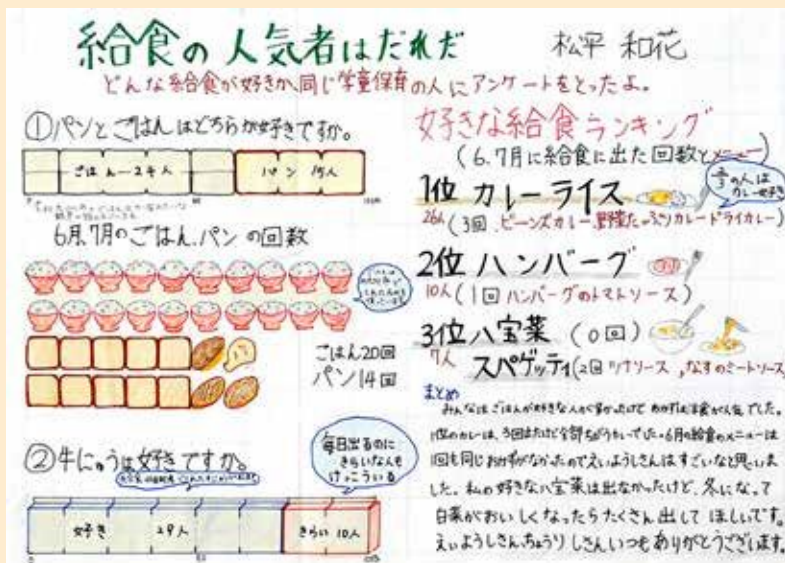 給食の人気者はだれだ 松平 和花
どんな給食が好きか、同じ学童保育の人にアンケートをとったよ。
①パンとごはんはどちらが好きですか。
ごはん 24人 パン 15人
6月、7月のごはん、パンの回数
ごはん20回
パン14回
②牛にゅうは好きですか。
毎日出るのに
きらいな人も
けっこういる
好き 29人 きらい 10人
好きな給食ランキング
(6、7月に給食に出た回数とメニュー)
1位 カレーライス
2/3の人は
カレー好き
26人(3回 ビーンズカレー、野菜たっぷりカレー、ドライカレー)
2位 ハンバーグ
10人(1回 ハンバーグのトマトソース)
3位 八宝菜 (0回)
7人 スパゲッティ(2回 ツナソース、なすのミートソース)
まとめ
みんなはごはんが好きな人が多かったけど、おかずは洋食が人気でした。
1位のカレーは、3回出たけど全部ちがうカレーでした。6月の給食のメニューは
1回も同じおかずがなかったのでえいようしさんはすごいなと思いま
した。私の好きな八宝菜は出なかったけど、冬になって
白菜がおいしくなったらたくさん出してほしいです。
えいようしさん、ちょうりしさんいつもありがとうございます。